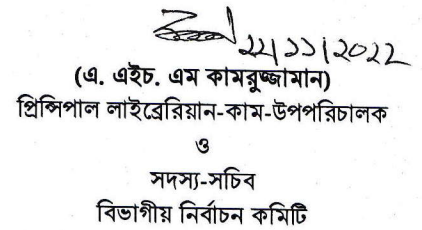 ২২/১১/২০২২
(এ. এইচ. এম কামরুজ্জামান)
প্রিন্সিপাল লাইব্রেরিয়ান-কাম-উপপরিচালক
ও
সদস্য-সচিব
বিভাগীয় নির্বাচন কমিটি